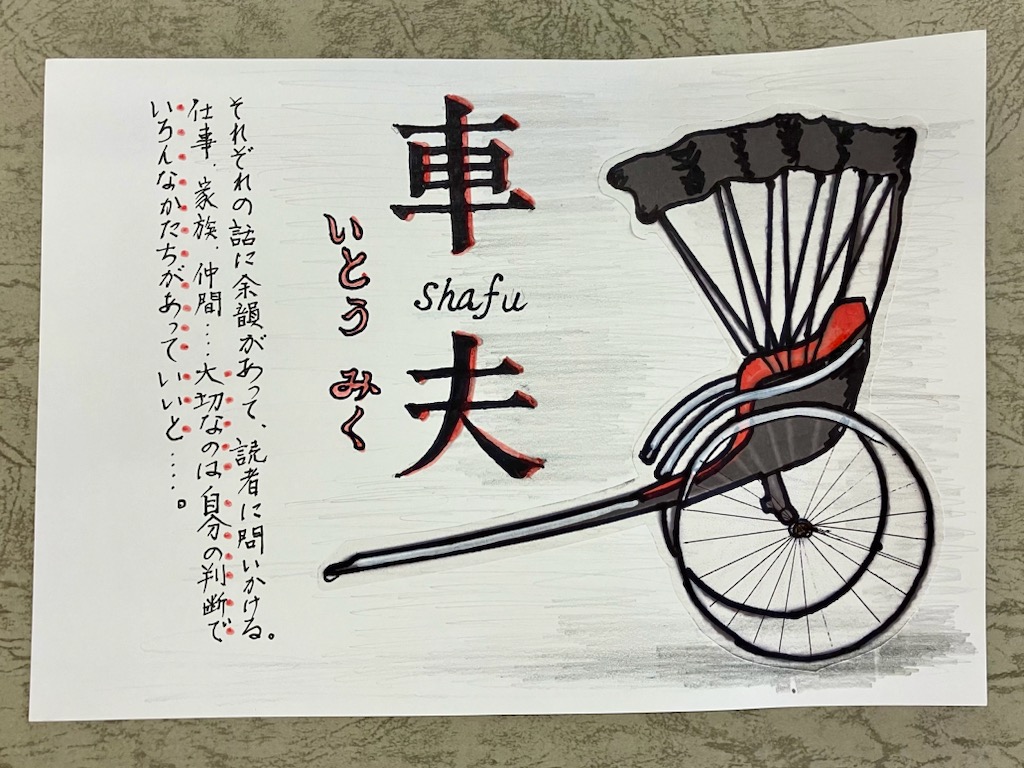 車夫
shafu
いとう みく
それぞれの話に余韻があって、読者に問いかける。
仕事、家族、仲間‥‥大切なのは自分の判断で
いろんなかたちがあっていいと‥‥。